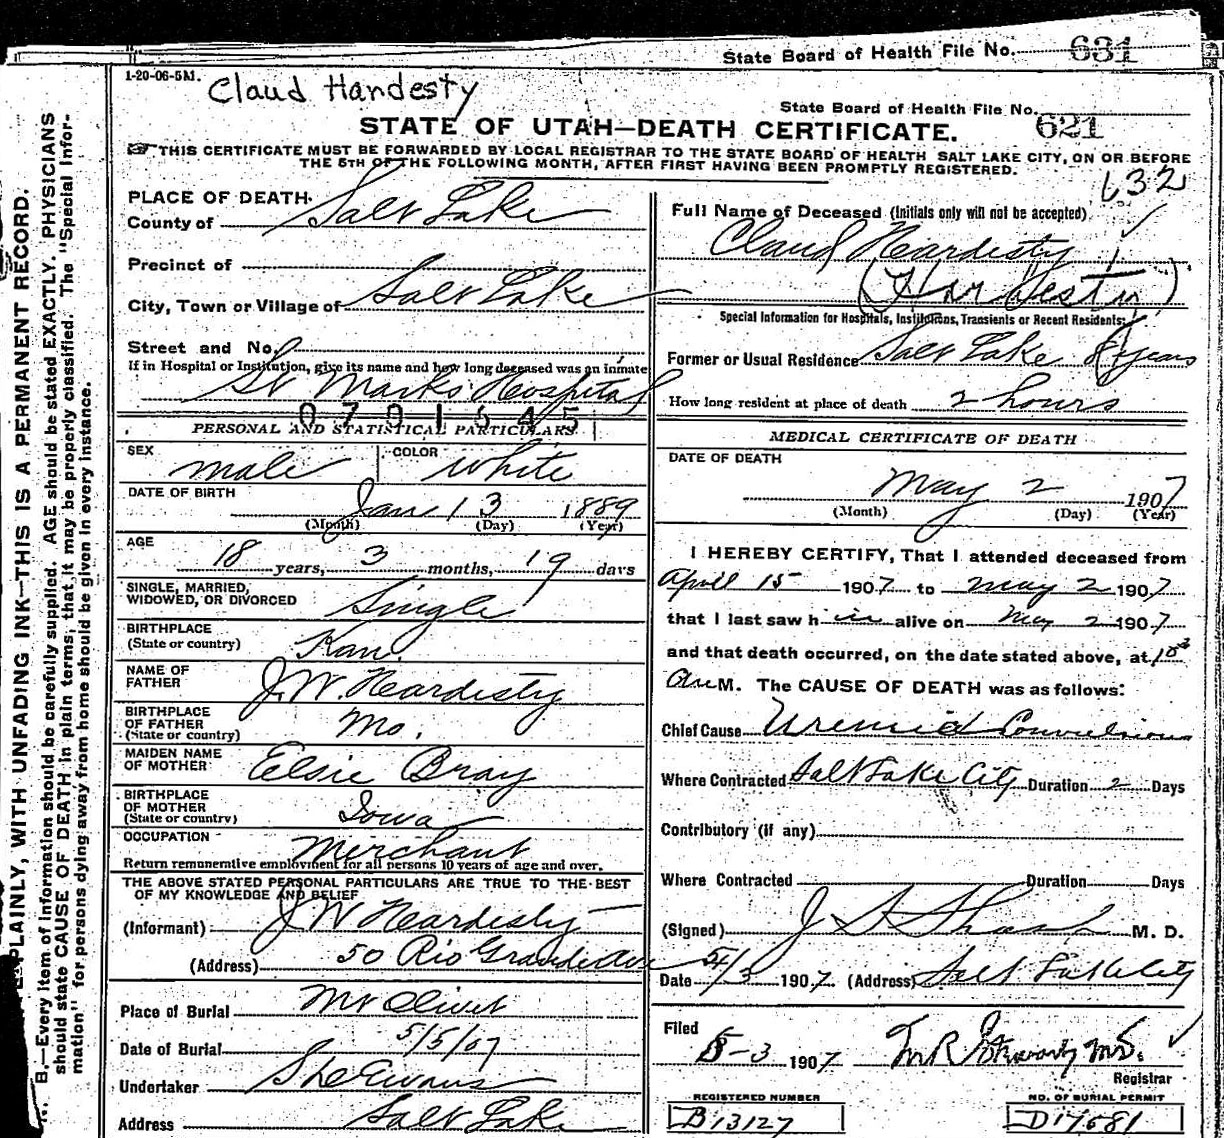 State Board of Health File No. 631
1-20-06-5M.
Claud Handesty
State Board of Health File No.
621
STATE OF UTAH—DEATH CERTIFICATE.
THIS CERTIFICATE MUST BE FORWARDED BY LOCAL REGISTRAR TO THE STATE BOARD OF HEALTH SALT LAKE CITY, ON OR BEFORE
THE 5TH OF THE FOLLOWING MONTH, AFTER FIRST HAVING BEEN PROMPTLY REGISTERED.
632
PLAINLY, WITH UNFADING INK—THIS IS A PERMANENT RECORD.
B.—Every item of information should be carefully supplied. AGE should be stated EXACTLY. PHYSICIANS
should state CAUSE OF DEATH in plain terms, that it may be properly classified. The "Special Infor-
mation" for persons dying away from home should be given in every instance.
PLACE OF DEATH
County of Salt Lake
Precinct of
City, Town or Village of Salt Lake
Street and No.
If in Hospital or Institution, give its name and how long deceased was an inmate
St Marks Hospital
0701645
PERSONAL AND STATISTICAL PARTICULARS
SEX male COLOR White
DATE OF BIRTH Jan 13 1889
(Month) (Day) (Year)
AGE
18 years, 3 months, 19 days
SINGLE, MARRIED,
WIDOWED, OR DIVORCED Single
BIRTHPLACE
(State or country) Kan.
NAME OF
FATHER J. W. Heardesty
BIRTHPLACE
OF FATHER
(State or country) Mo.
MAIDEN NAME
OF MOTHER Elsie Bray
BIRTHPLACE
OF MOTHER
(State or country) Iowa
OCCUPATION Merchant
Return remunerative employment for all persons 10 years of age and over.
THE ABOVE STATED PERSONAL PARTICULARS ARE TRUE TO THE BEST
OF MY KNOWLEDGE AND BELIEF
(Informant) J W Heardesty
(Address) 50 Rio Grande Ave
Place of Burial Mt Olivet
Date of Burial 5/5/07
Undertaker S he Evans
Address Salt Lake
Full Name of Deceased (Initials only will not be accepted)
Claud Heardesty
(Hardesty)
Special Information for Hospitals, Institutions, Transients or Recent Residents:
Former or Usual Residence Salt Lake 8 years
How long resident at place of death 2 hours
MEDICAL CERTIFICATE OF DEATH
DATE OF DEATH
May 2 1907
(Month) (Day) (Year)
I HEREBY CERTIFY, That I attended deceased from
April 15 1907 to May 2 1907
that I last saw h im alive on May 2 1907
and that death occurred, on the date stated above, at 10
am M. The CAUSE OF DEATH was as follows:
Chief Cause Uremic Convulsions
Where Contracted Salt Lake City Duration 2 Days
Contributory (if any)
Where Contracted Duration Days
(Signed) M. D.
Date 5/3 1907 (Address) Salt Lake City
Filed
5-3 1907 M.D.
Registrar
REGISTERED NUMBER
B13127
NO. OF BURIAL PERMIT
D17681